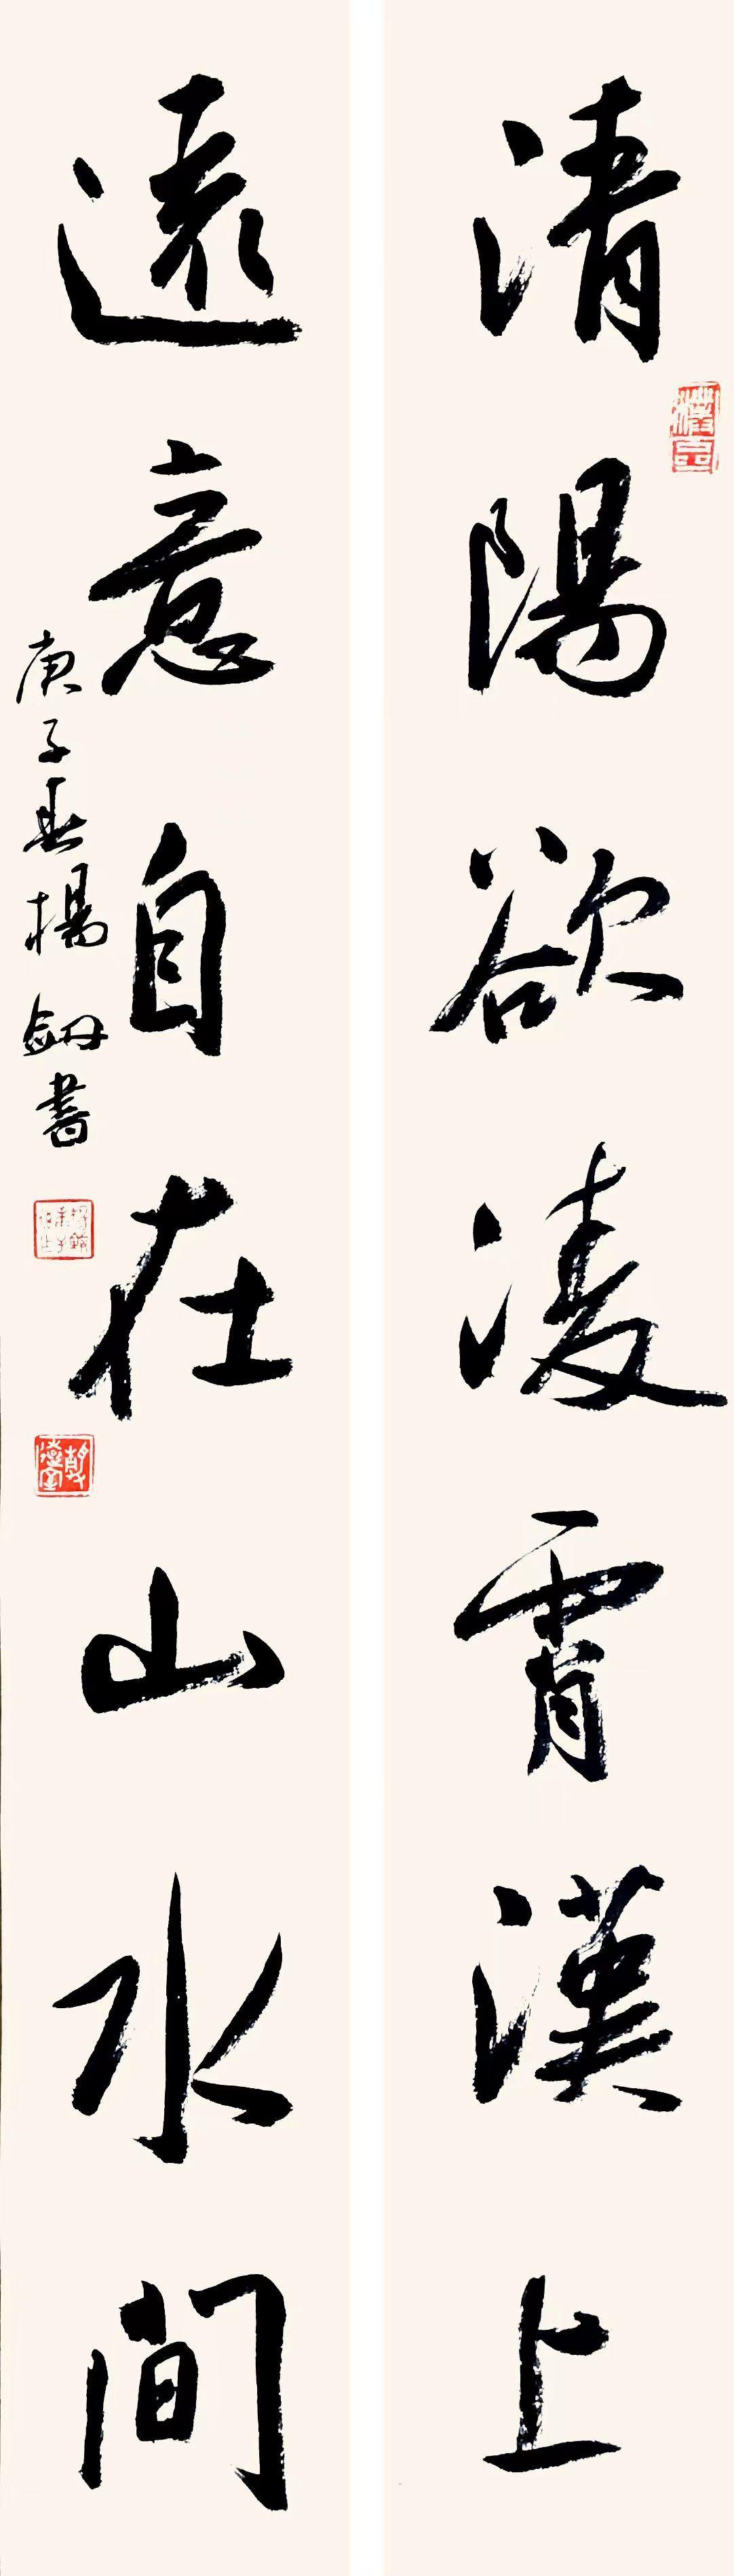 清陽欲凌霄漢上
遠意自在山水間
庚子春楊劍書